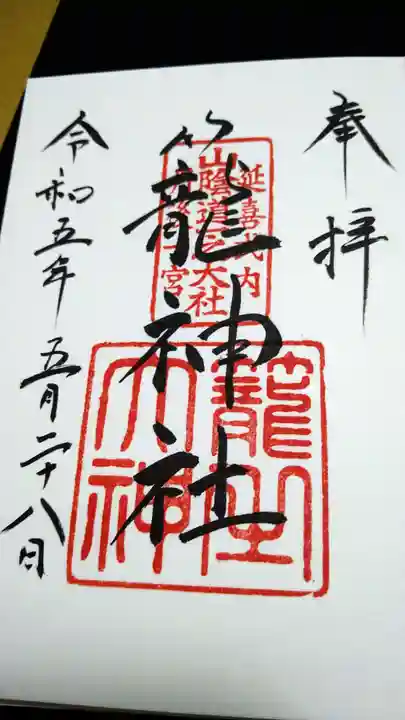 奉拝
延喜式内
山陰道一之大社
籠神社
籠之大神
令和五年五月二十八日